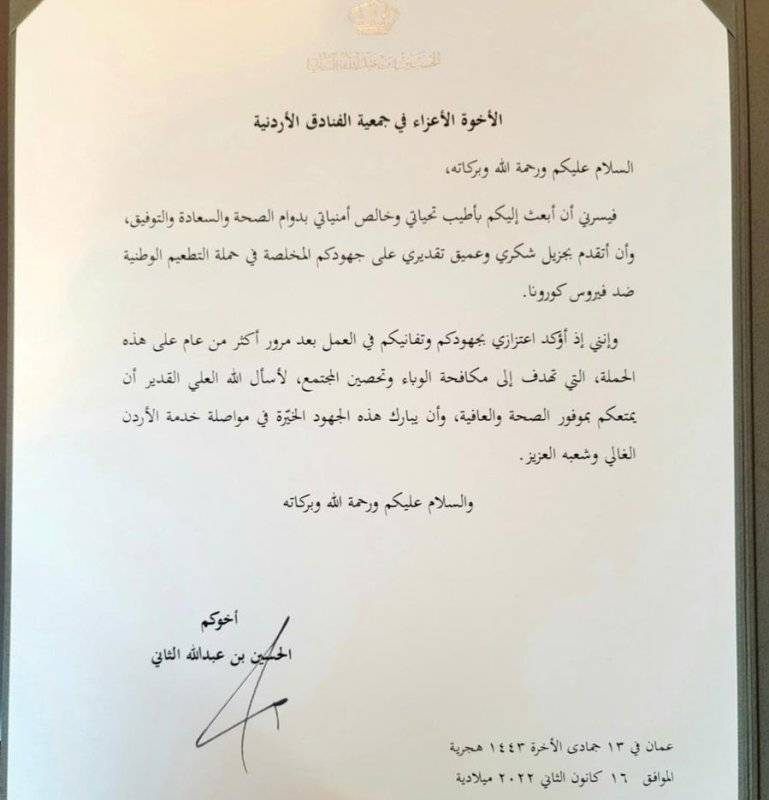 الحسين بن عبدالله الثاني
الأخوة الأعزاء في جمعية الفنادق الأردنية
السلام عليكم ورحمة الله وبركاته،
فيسرني أن أبعث إليكم بأطيب تحياتي وخالص أمنياتي بدوام الصحة والسعادة والتوفيق،
وأن أتقدم بجزيل شكري وعميق تقديري على جهودكم المخلصة في حملة التطعيم الوطنية
ضد فيروس كورونا.
وإنني إذ أؤكد اعتزازي بجهودكم وتفانيكم في العمل بعد مرور أكثر من عام على هذه
الحملة، التي تهدف إلى مكافحة الوباء وتحصين المجتمع، لأسأل الله العلي القدير أن
يمتعكم بموفور الصحة والعافية، وأن يبارك هذه الجهود الخيّرة في مواصلة خدمة الأردن
الغالي وشعبه العزيز.
والسلام عليكم ورحمة الله وبركاته
أخوكم
الحسين بن عبدالله الثاني
عمان في ١٣ جمادى الأخرة ١٤٤٣ هجرية
الموافق ١٦ كانون الثاني ٢٠٢٢ ميلادية